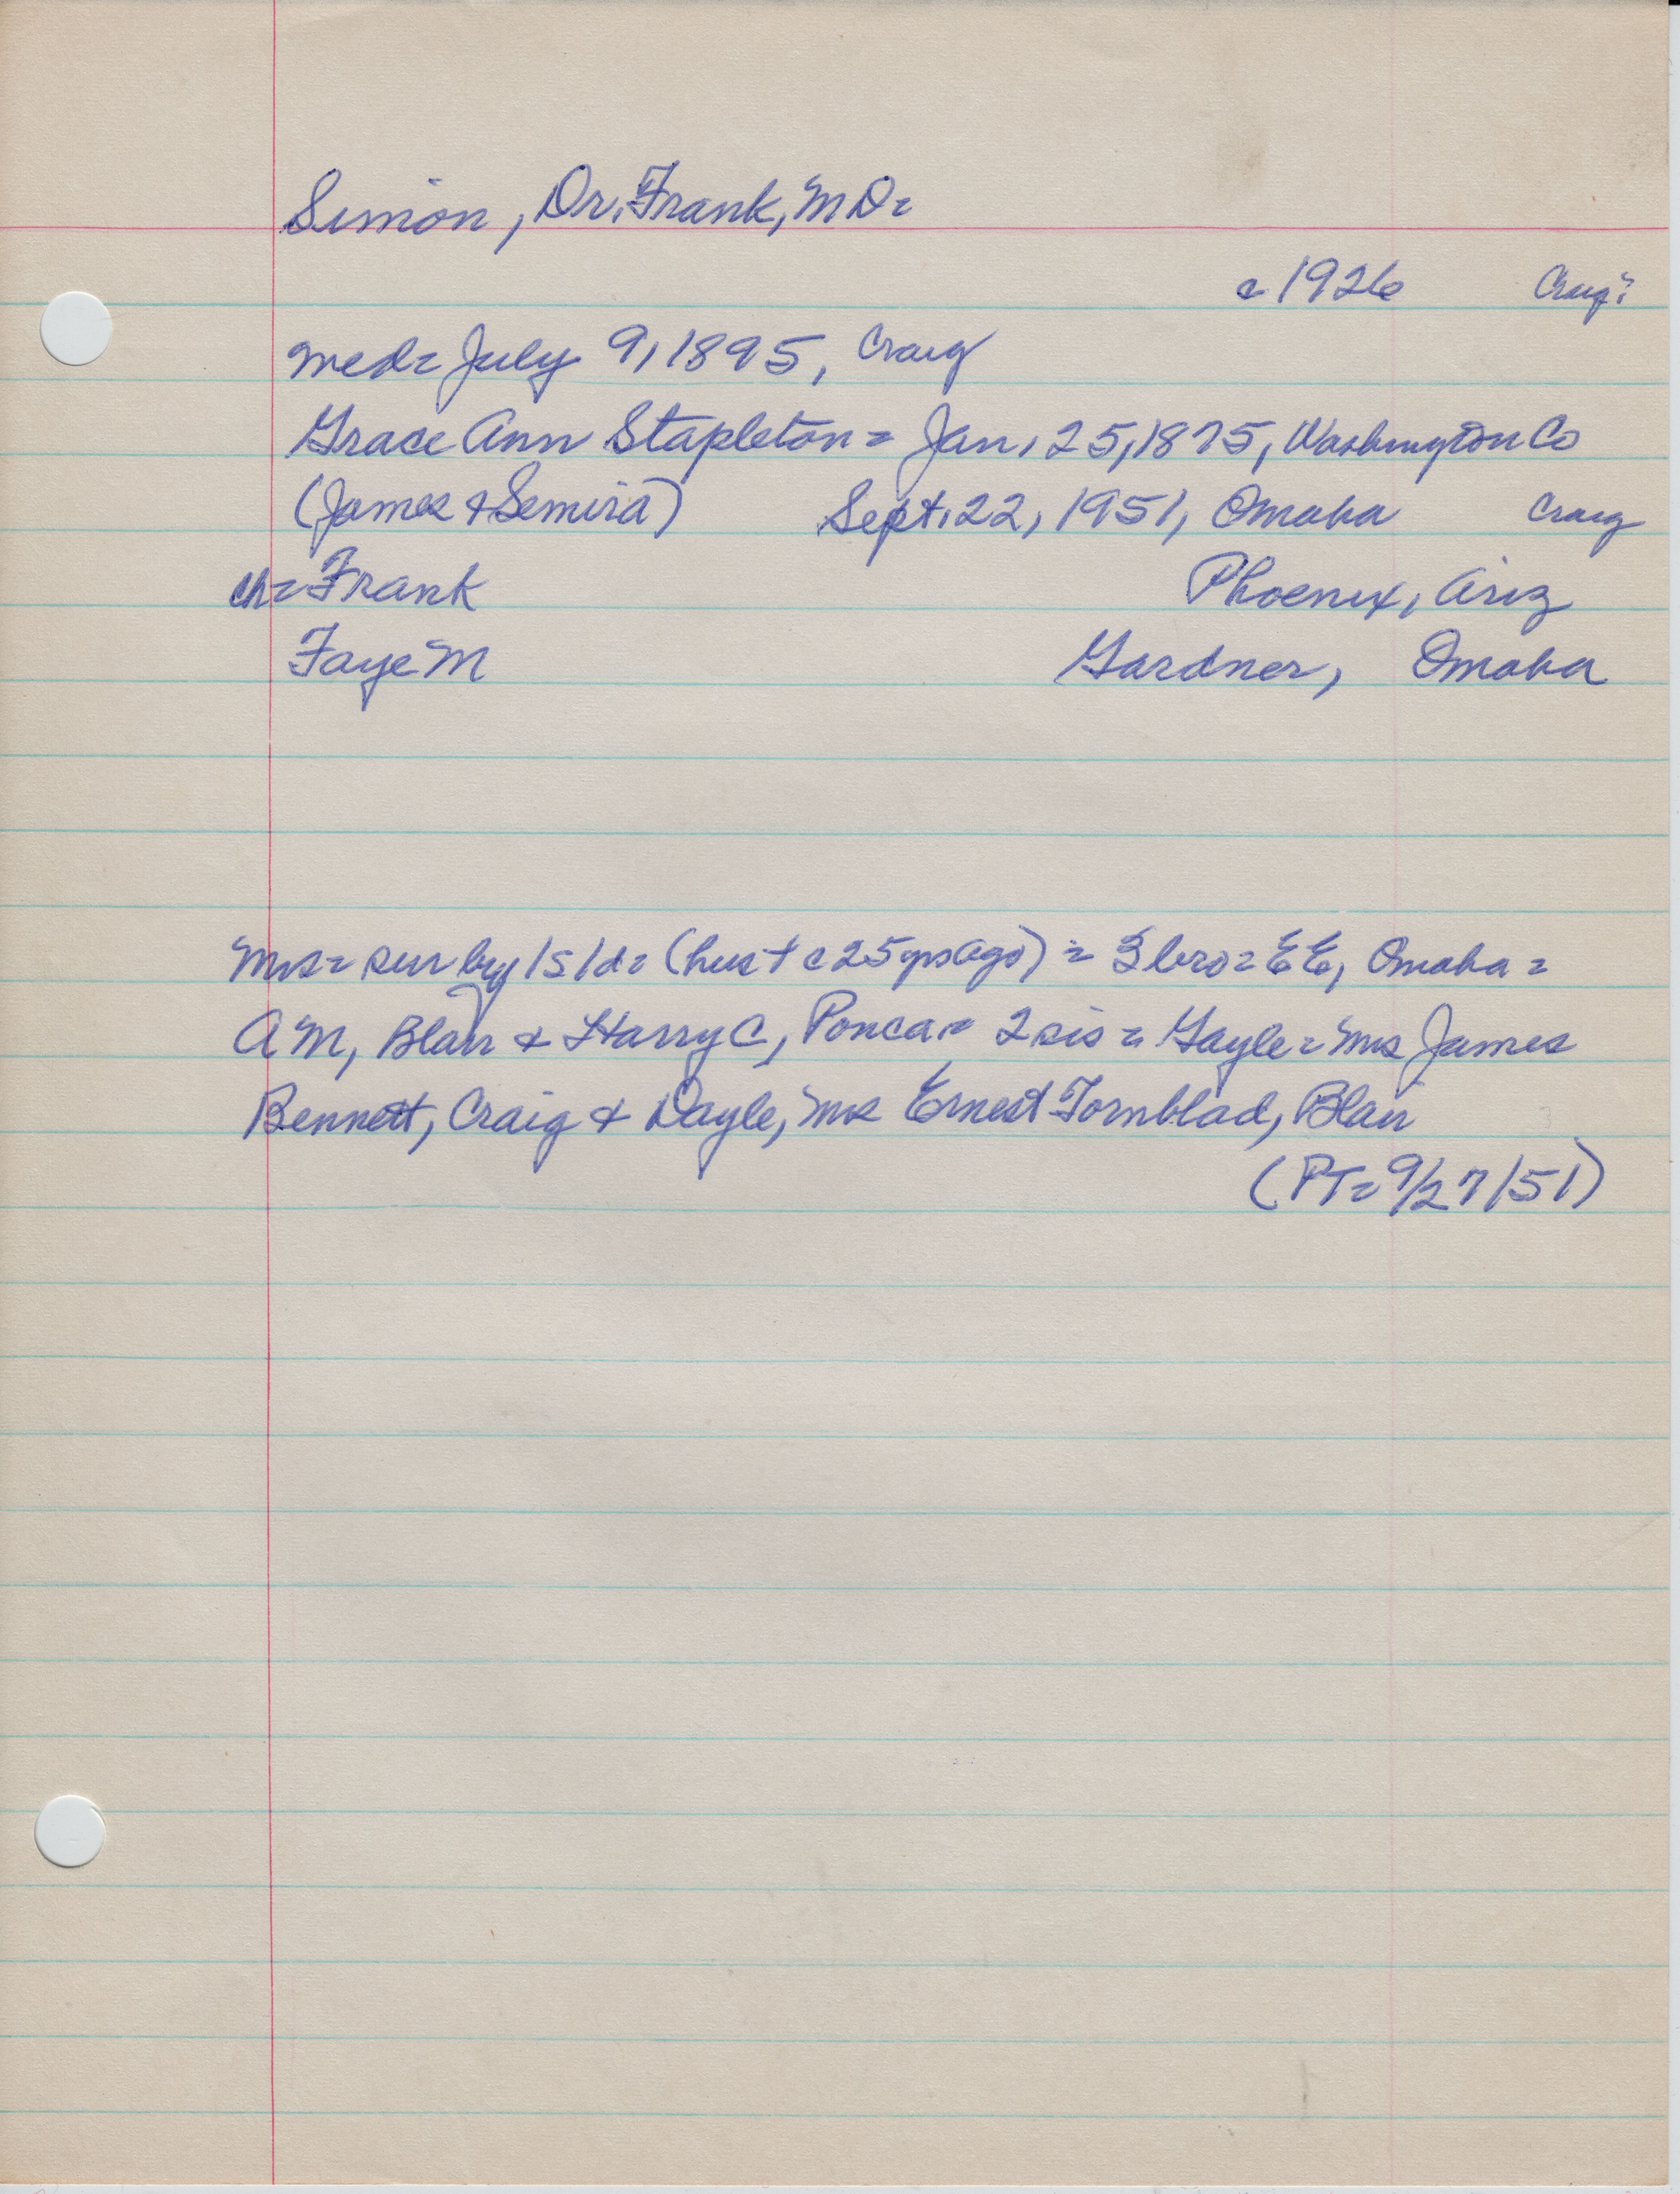 Simon, Dr. Frank, MD=
c 1926 Craig?
med= July 9, 1895, Craig
Grace Ann Stapleton = Jan, 25, 1875, Washington Co
(James & Semira) Sept. 22, 1951, Omaha Craig
ch= Frank Phoenix, Ariz
Faye M Gardner, Omaha
Mrs= sur by 1s/1d= (hus + c 25 yrs ago) = 3 bro= EE, Omaha =
AM, Blair & Harry C, Ponca= 2 sis = Gayle= Mrs James
Bennett, Craig & Dayle, Mrs Ernest Tornblad, Blair
(PT= 9/27/51)